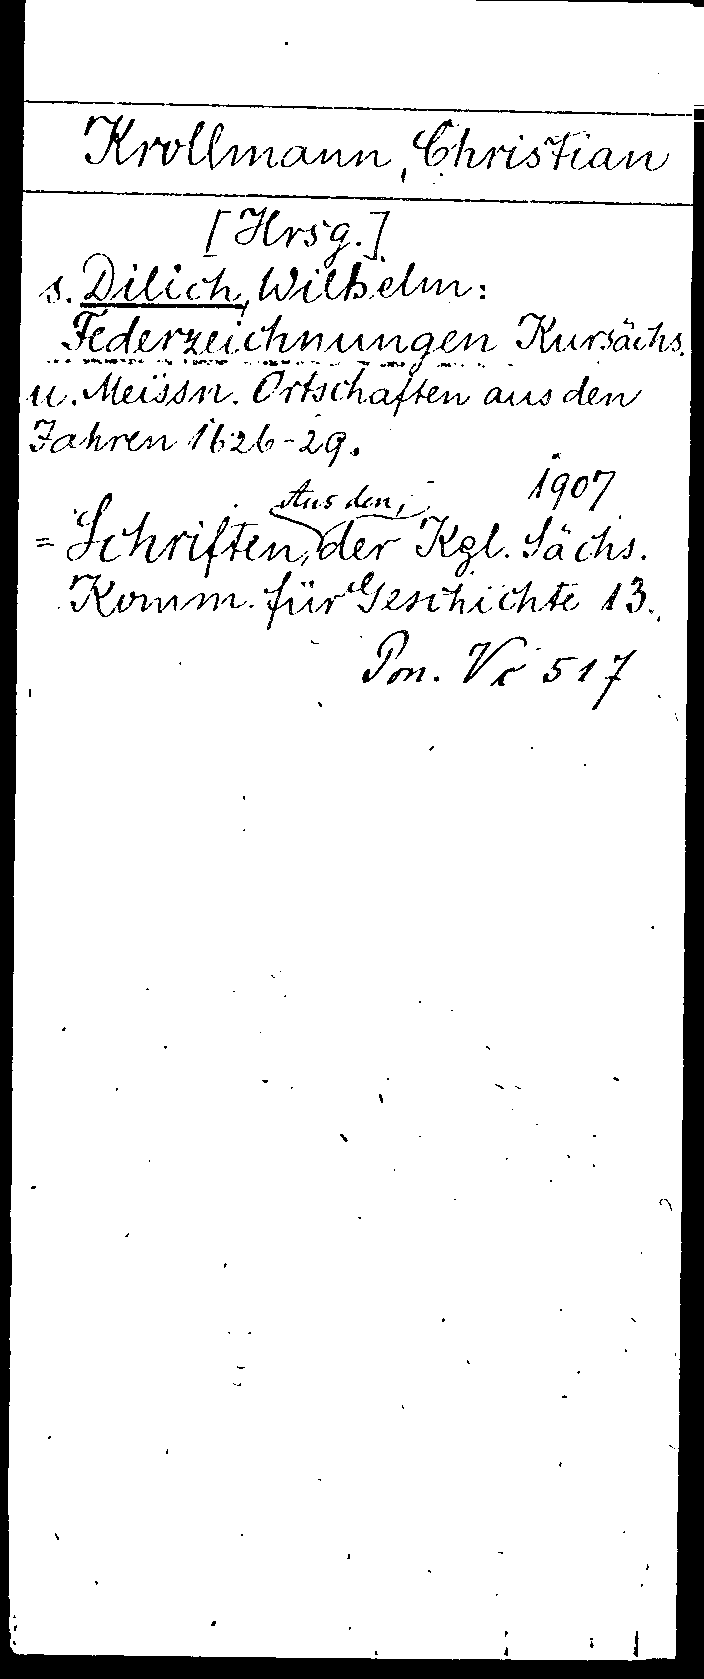 Krollmann, Christian
[Hrsg.]
s. Dilich, Wilhelm:
Federzeichnungen Kursächs.
u. Meissn. Ortschaften aus den
Jahren 1626-29.
1907
Aus den
= Schriften, der Kgl. Sächs.
Komm. für Geschichte 13.
Pon. Vc 517